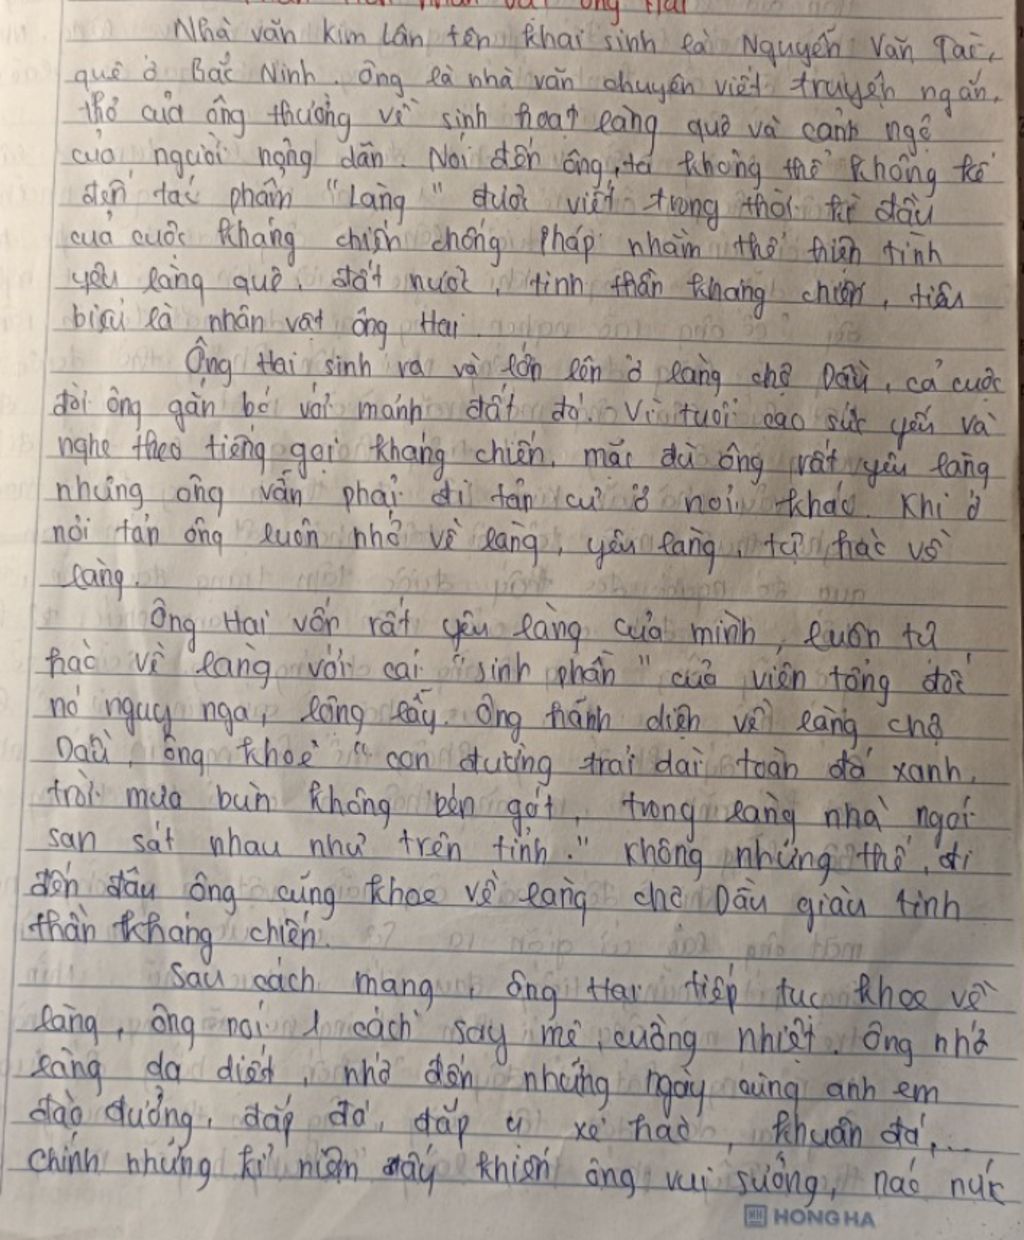 Phân tích nhân vật ông Hai
Nhà văn Kim Lân tên khai sinh là Nguyễn Văn Tài,
quê ở Bắc Ninh. Ông là nhà văn chuyên viết truyện ngắn,
thơ của ông thường về sinh hoạt làng quê và cảnh ngộ
của người nông dân. Nói đến ông, ta không thể không kể
đến tác phẩm "Làng" được viết trong thời kì đầu
của cuộc kháng chiến chống Pháp nhằm thể hiện tình
yêu làng quê, đất nước, tinh thần kháng chiến, tiêu
biểu là nhân vật ông Hai.
Ông Hai sinh ra và lớn lên ở làng chợ Dầu, cả cuộc
đời ông gắn bó với mảnh đất đó. Vì tuổi cao sức yếu và
nghe theo tiếng gọi kháng chiến, mặc dù ông rất yêu làng
nhưng ông vẫn phải đi tản cư ở nơi khác. Khi ở
nơi tản ông luôn nhớ về làng, yêu làng, tự hào về
làng.
Ông Hai vốn rất yêu làng của mình, luôn tự
hào về làng với cái "sinh phần" của viên tổng đốc
nó nguy nga, lộng lẫy. Ông hãnh diện về làng chợ
Dầu, ông khoe "con đường trải dài toàn đá xanh,
trời mưa bùn không bén gót, trong làng nhà ngói
san sát nhau như trên tỉnh." Không những thế, đi
đến đâu ông cũng khoe về làng chợ Dầu giàu tinh
thần kháng chiến.
Sau cách mạng, ông Hai tiếp tục khoe về
làng, ông nói 1 cách say mê, cuồng nhiệt. Ông nhớ
làng da diết, nhớ đến những ngày cùng anh em
đào đường, đắp đá, đắp ụ xẻ hào, khuân đá,...
Chính những kỉ niệm đấy khiến ông vui sướng, náo nức
HONG HA